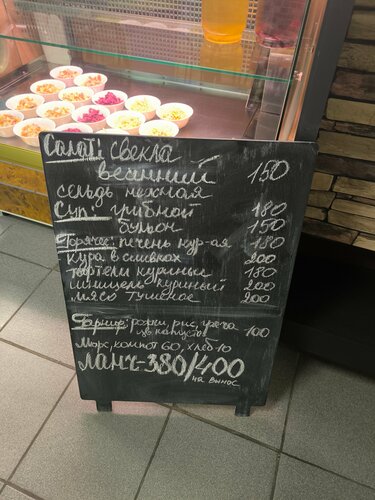 Салат: свекла
весенний 150
сельдь нежная
Суп: грибной 180
бульон 150
Горячее: печень кур-ая 180
кура в сливках 200
тефтели куриные 180
шницель куриный 200
мясо тушеное 200
Гарнир: рожки, рис, греча
цв капуста 100
Морс, компот 60, хлеб 10
Ланч-380/400
на вынос